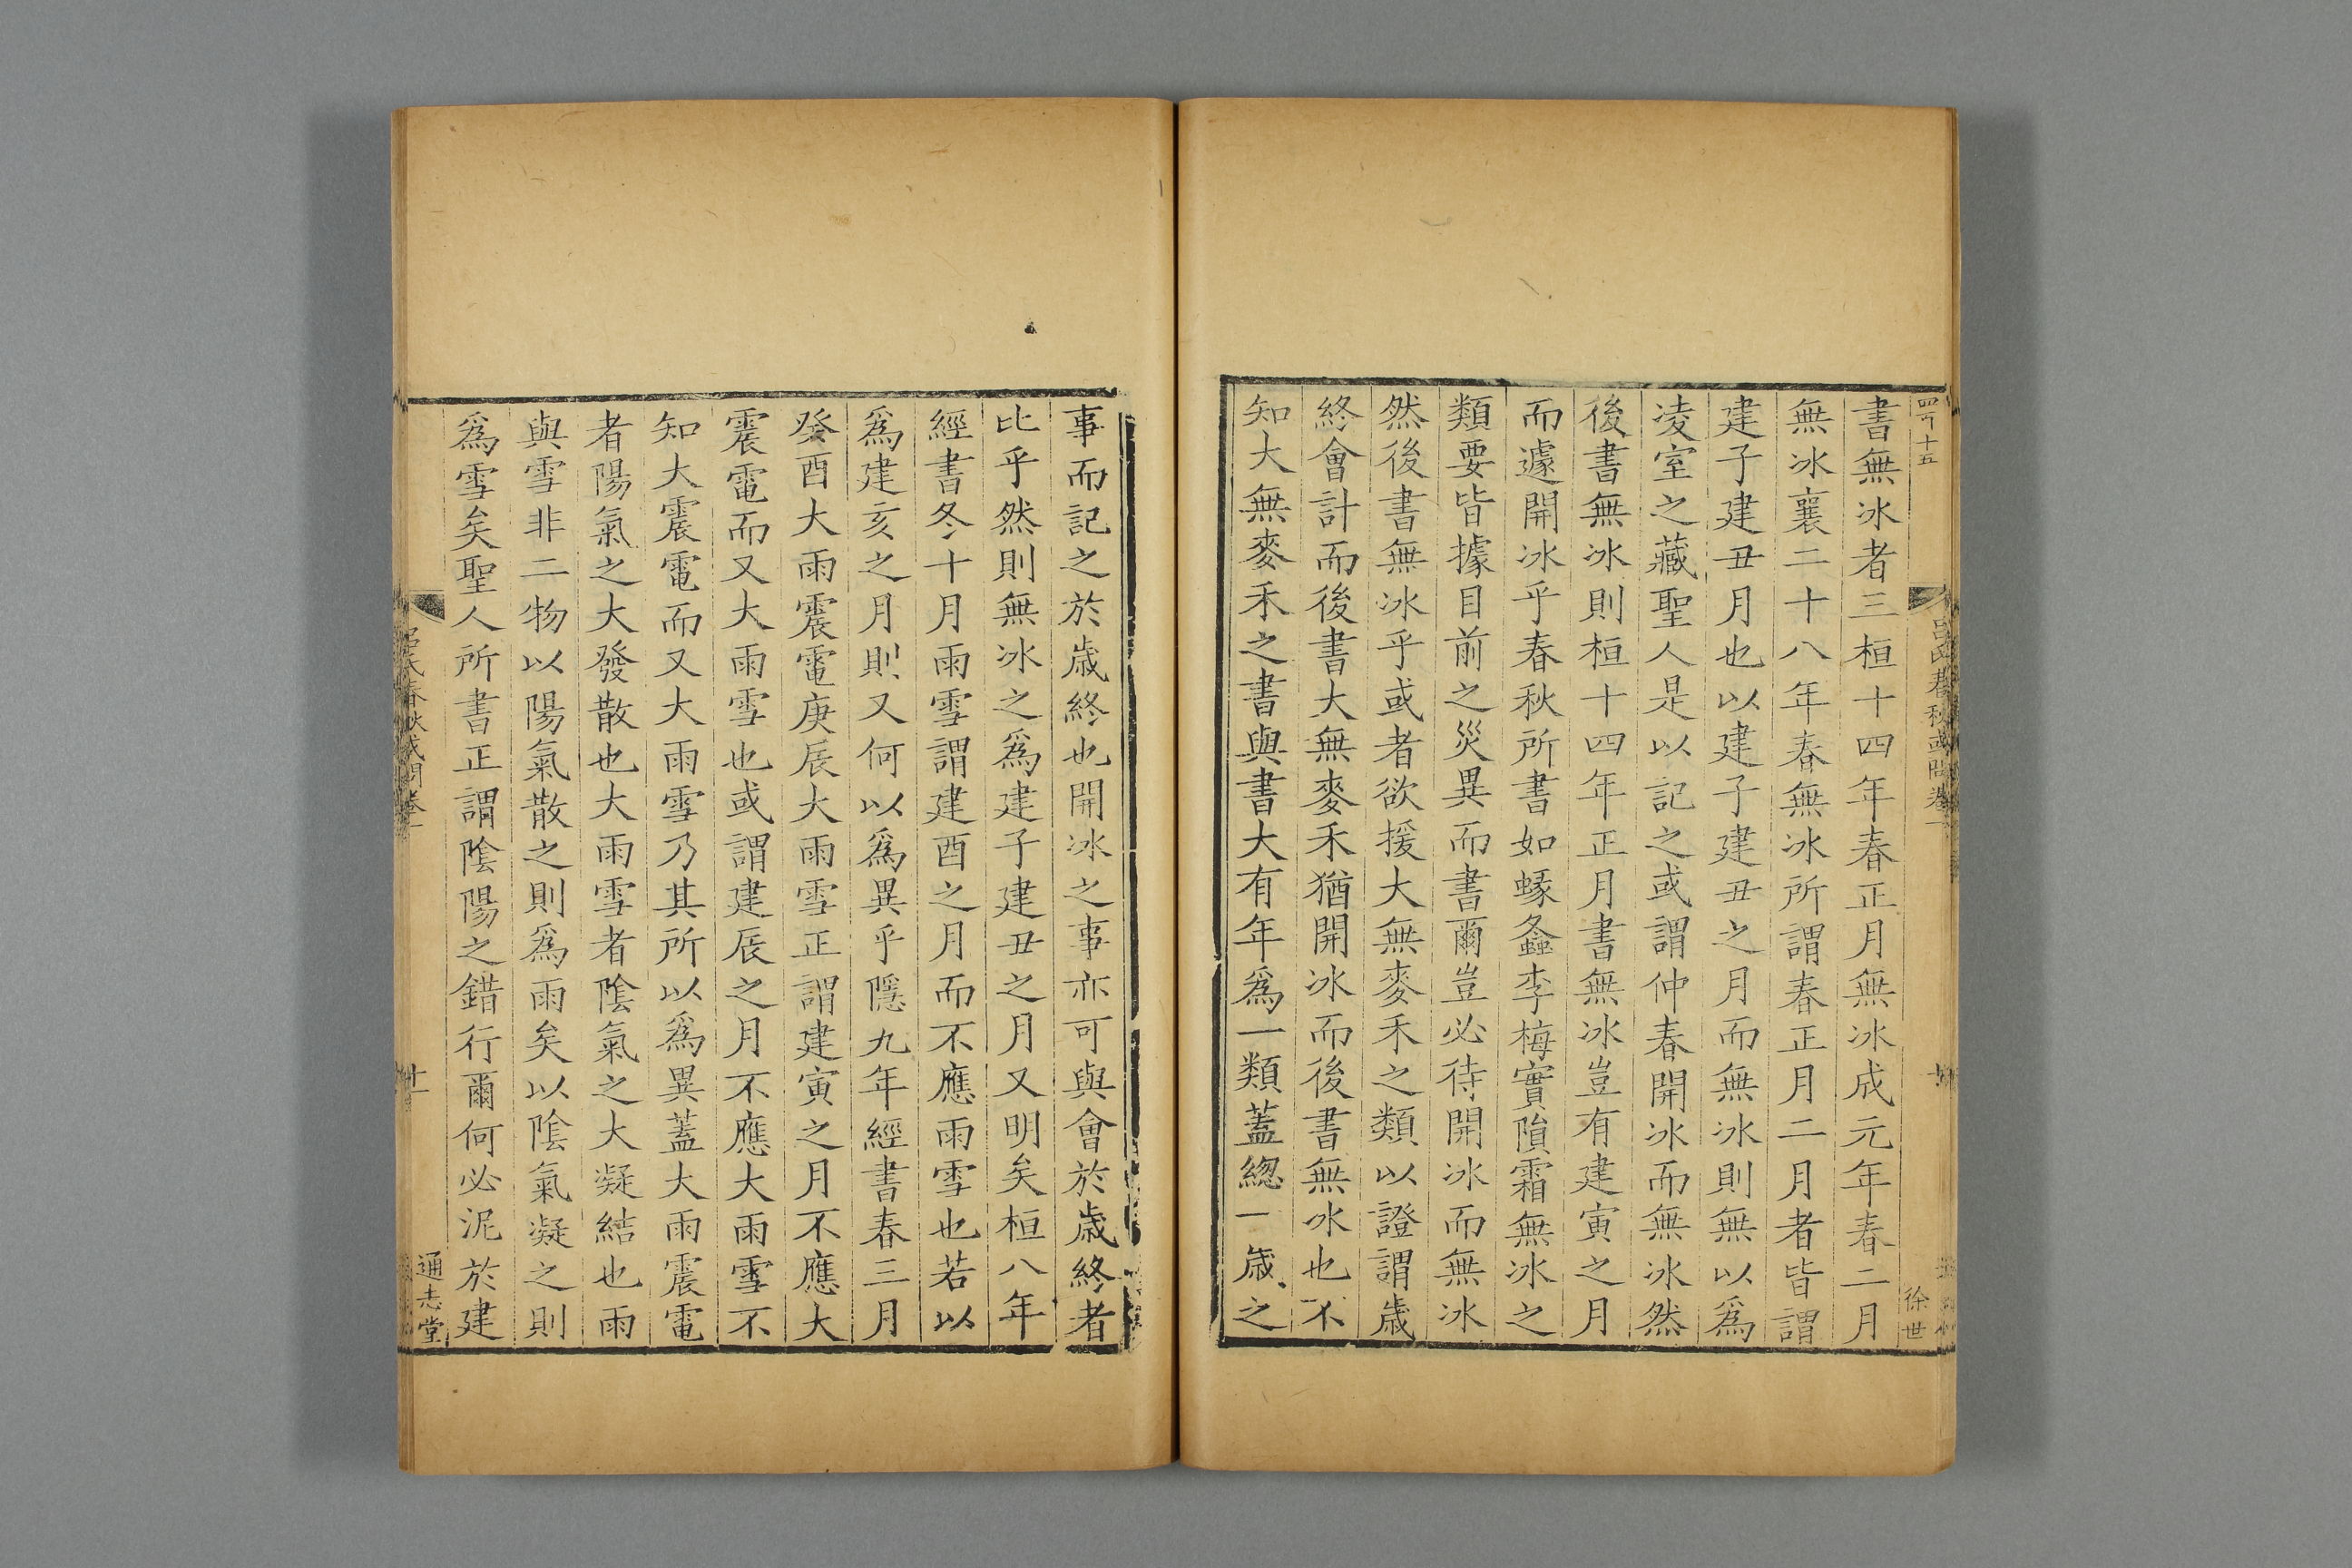 書無冰者三桓十四年春正月無冰成元年春二月
無冰襄二十八年春無冰所謂春正月二月者皆謂
建子建丑月也以建子建丑之月而無冰則無以爲
凌室之藏聖人是以記之或謂仲春開冰而無冰然
後書無冰則桓十四年正月書無冰豈有建寅之月
而遽開冰乎春秋所書如蝝螽李梅實隕霜無冰之
類要皆據目前之災異而書爾豈必待開冰而無冰
然後書無冰乎或者欲援大無麥禾之類以證謂歳
終會計而後書大無麥禾猶開冰而後書無冰也不
知大無麥禾之書與書大有年爲一類蓋緫一歳之
事而記之於歳終也開冰之事亦可與會於歳終者
比乎然則無冰之爲建子建丑之月又明矣桓八年
經書冬十月雨雪謂建酉之月而不應雨雪也若以
爲建亥之月則又何以爲異乎隱九年經書春三月
癸酉大雨震電庚辰大雨雪正謂建寅之月不應大
震電而又大雨雪也或謂建辰之月不應大雨雪不
知大震電而又大雨雪乃其所以爲異蓋大雨震電
者陽氣之大發散也大雨雪者陰氣之大凝結也雨
與雪非二物以陽氣散之則爲雨矣以陰氣凝之則
爲雪矣聖人所書正謂陰陽之錯行爾何必泥於建
呂氏春秋或問卷一
十一
通志堂
徐世